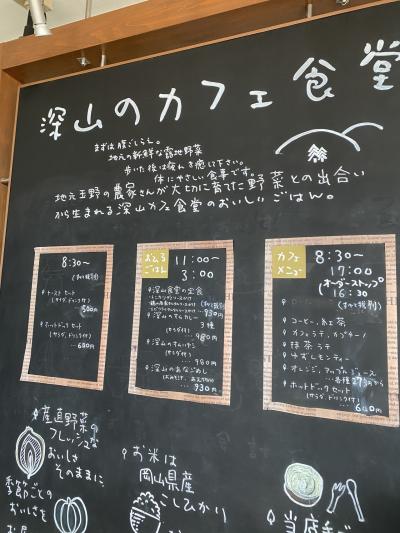 深山のカフェ食堂
まずは腹ごしらえ。
地元の新鮮な露地野菜
歩いた後は疲れを癒して下さい。
体にやさしい食事です。
地元玉野の農家さんが大切に育てた野菜との出合い
から生まれる深山カフェ食堂のおいしいごはん。
8:30〜
(すべて税別)
トーストセット
(サラダ、ドリンク付)
ホットドックセット
(サラダ、ドリンク付)
…680円
おひるごはん
11:00〜
3:00
(すべて税別)
深山食堂の定食
…930円
深山のすムカレー
3種
(サラダ付)
…980円
(サラダ付)
…980円
深山のあなごめし
…930円
カフェメニュー
8:30〜
17:00
(オーダーストップ
16:30
(すべて税別)
コーヒー、紅茶
カフェラテ、カプチーノ
抹茶ラテ
ゆずレモンティー
オレンジ、アップルジュース
ホットドックセット
(サラダ、ドリンク付)
産直野菜の
フレッシュな
おいしさ
そのままに。
季節ごと
のおいしさを
お米は
岡山県産
こしひかり
当店手ご